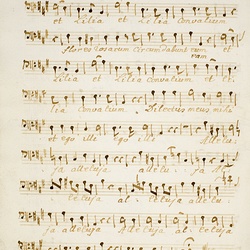 et Lilia et Lilia Convalium
Flores Rosarum Circumdabunt eam et
eam
Lilia et Lilia Convalium et Li
lia Convalium Dilectus meus mihi
et ego illi et ego illi Allelu
ja alleluja allelu ja Al
leluja alleluja allelu
ja alleluja Alleluja alleluja